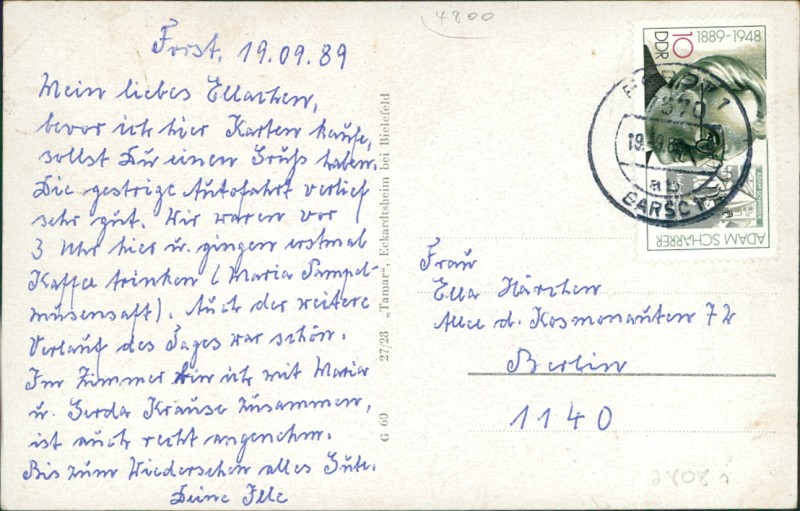 4800
Forst, 19.09.89
Mein liebes Ellachen,
bevor ich hier Karten kaufe,
sollst Du einen Gruß haben.
Die gestrige Autofahrt verlief
sehr gut. Wir waren vor
3 Uhr hier u. gingen erstmal
Kaffee trinken (Maria Pampel-
musensaft). Auch der weitere
Verlauf des Tages war schön.
Im Zimmer bin ich mit Maria
u. Gerda Krause zusammen,
ist auch recht angenehm.
Bis zum Wiedersehen alles Gute.
Deine Ille
G 60 27/28 „Tamar“, Eckardtsheim bei Bielefeld
1889-1948
10
DDR
ADAM SCHARRER
1
19.
Frau
Ella Härchen
Allee d. Kosmonauten 72
Berlin
1140